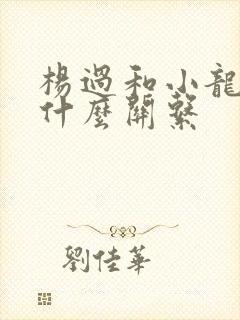 楊過和小龍
什麼關繫
劉佳華